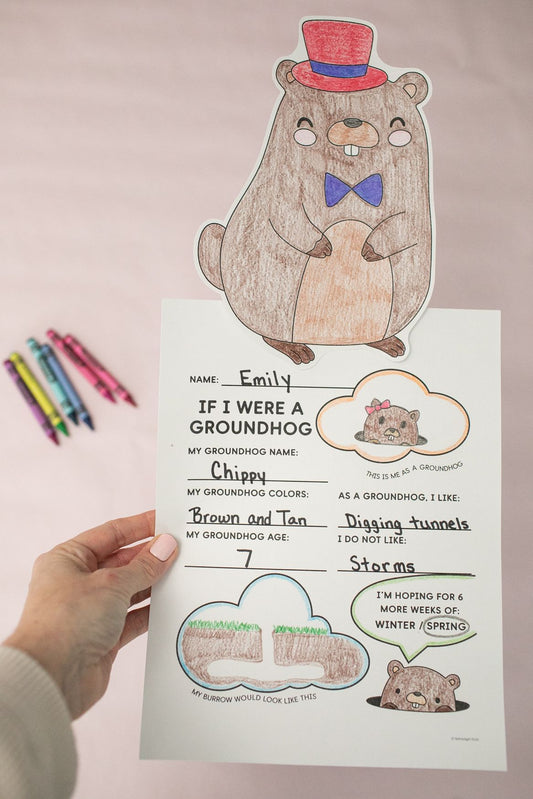 NAME: Emily
IF I WERE A
GROUNDHOG
THIS IS ME AS A GROUNDHOG
MY GROUNDHOG NAME:
Chippy
MY GROUNDHOG COLORS:
Brown and Tan
AS A GROUNDHOG, I LIKE:
Digging tunnels
MY GROUNDHOG AGE:
7
I DO NOT LIKE:
Storms
I'M HOPING FOR 6
MORE WEEKS OF:
WINTER / SPRING
MY BURROW WOULD LOOK LIKE THIS